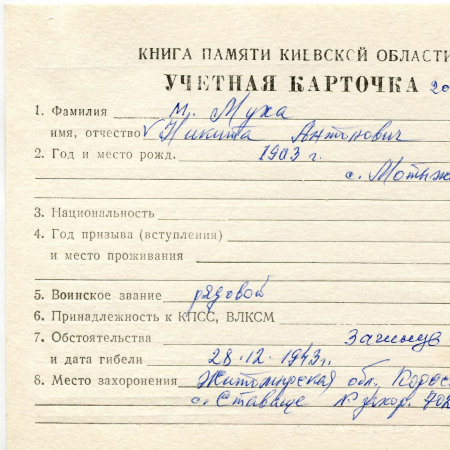 КНИГА ПАМЯТИ КИЕВСКОЙ ОБЛАСТИ
УЧЕТНАЯ КАРТОЧКА 20
1. Фамилия м. Муха
имя, отчество √ Никита Антонович
2. Год и место рожд. 1903 г.
с. Мотыж
3. Национальность
4. Год призыва (вступления)
и место проживания
5. Воинское звание рядовой
6. Принадлежность к КПСС, ВЛКСМ
7. Обстоятельства
и дата гибели 28.12.1943г.
8. Место захоронения Житомирская обл,
с. Ставище